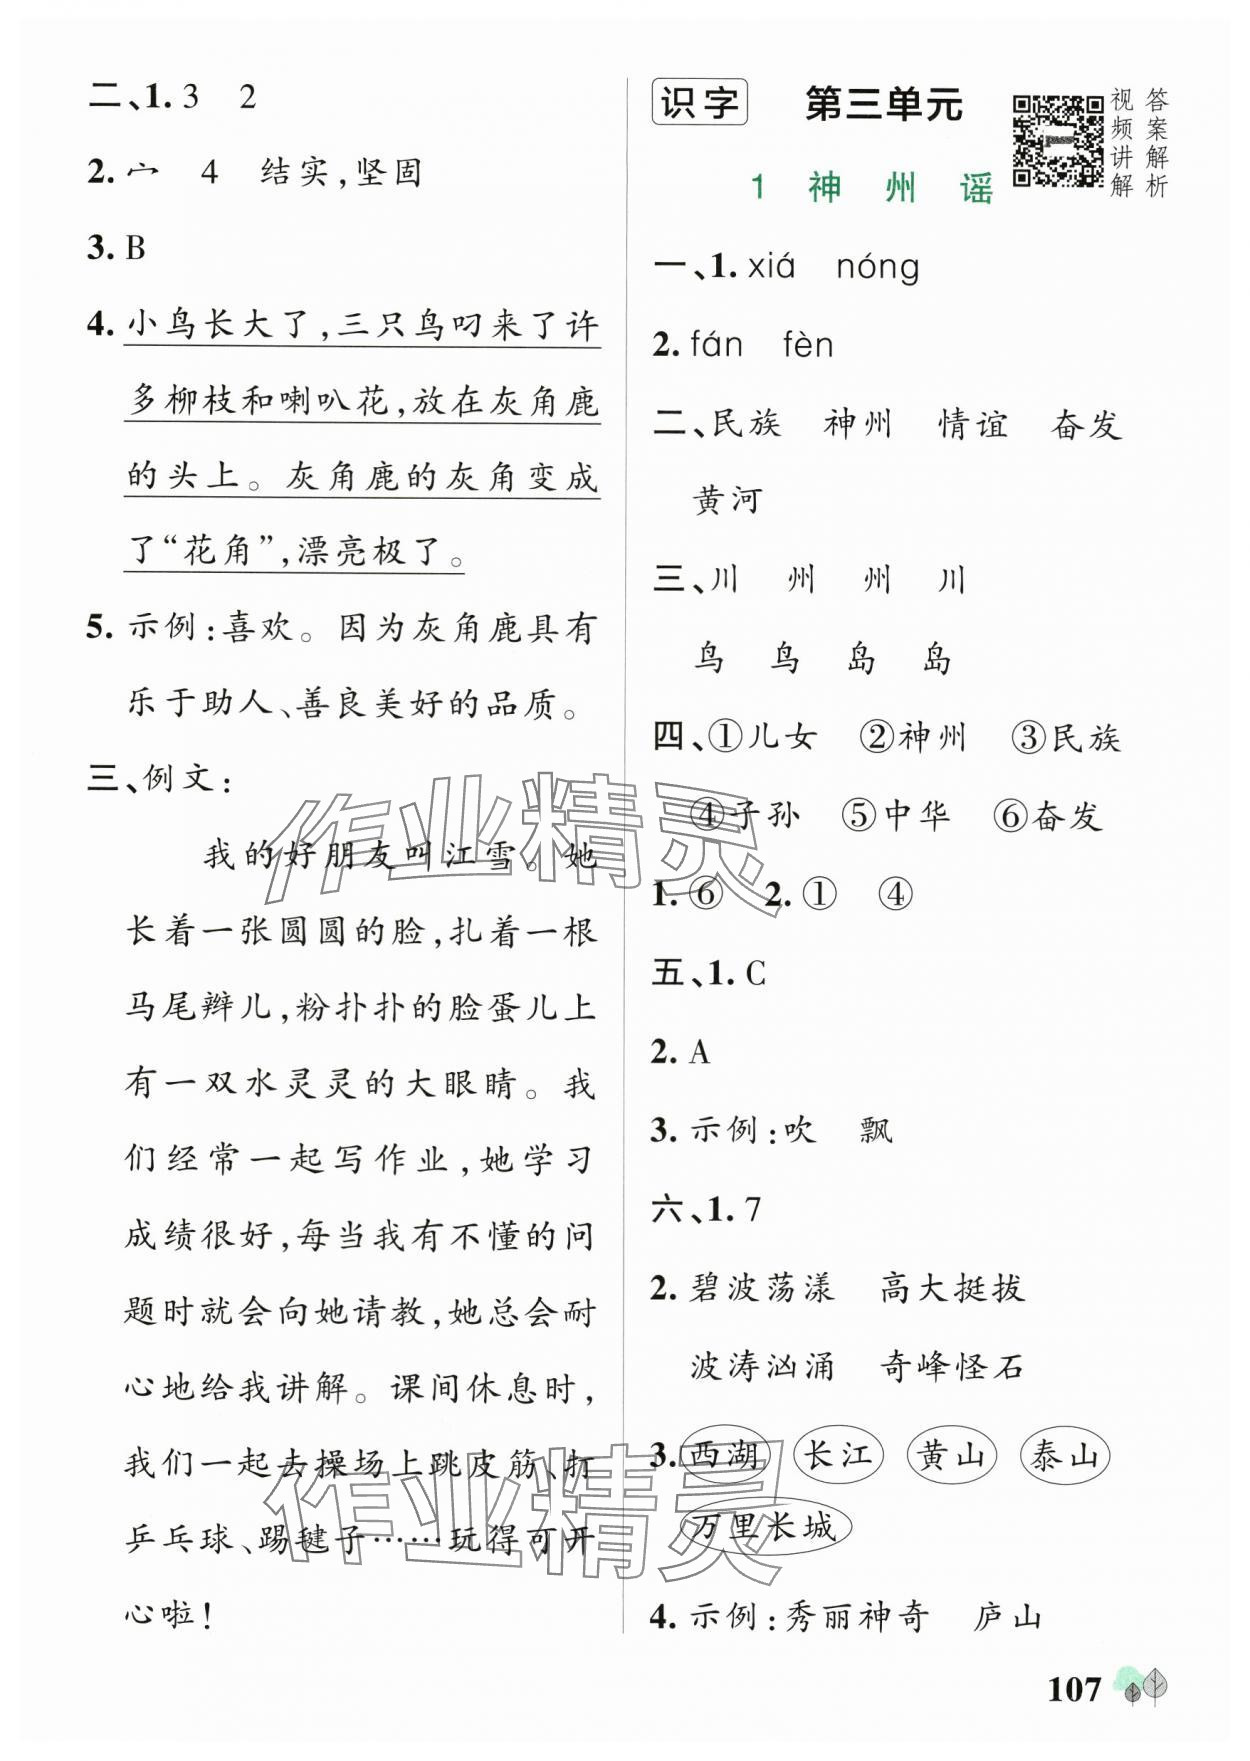 二、1. 3 2
2. 宀 4 结实,坚固
3. B
4. 小鸟长大了,三只鸟叼来了许
多柳枝和喇叭花,放在灰角鹿
的头上。灰角鹿的灰角变成
了“花角”,漂亮极了。
5. 示例:喜欢。因为灰角鹿具有
乐于助人、善良美好的品质。
三、例文:
我的好朋友叫江雪。她
长着一张圆圆的脸,扎着一根
马尾辫儿,粉扑扑的脸蛋儿上
有一双水灵灵的大眼睛。我
们经常一起写作业,她学习
成绩很好,每当我有不懂的问
题时就会向她请教,她总会耐
心地给我讲解。课间休息时,
我们一起去操场上跳皮筋、打
乒乓球、踢毽子……玩得可开
心啦!
识字 第三单元
视频讲解
答案解析
1 神州谣
一、1. xiá nóng
2. fán fèn
二、民族 神州 情谊 奋发
黄河
三、川 州 州 川
鸟 鸟 岛 岛
四、①儿女 ②神州 ③民族
④子孙 ⑤中华 ⑥奋发
1. ⑥ 2. ① ④
五、1. C
2. A
3. 示例:吹 飘
六、1. 7
2. 碧波荡漾 高大挺拔
波涛汹涌 奇峰怪石
3. 西湖 长江 黄山 泰山
万里长城
4. 示例:秀丽神奇 庐山
107
作业精灵
作业精灵